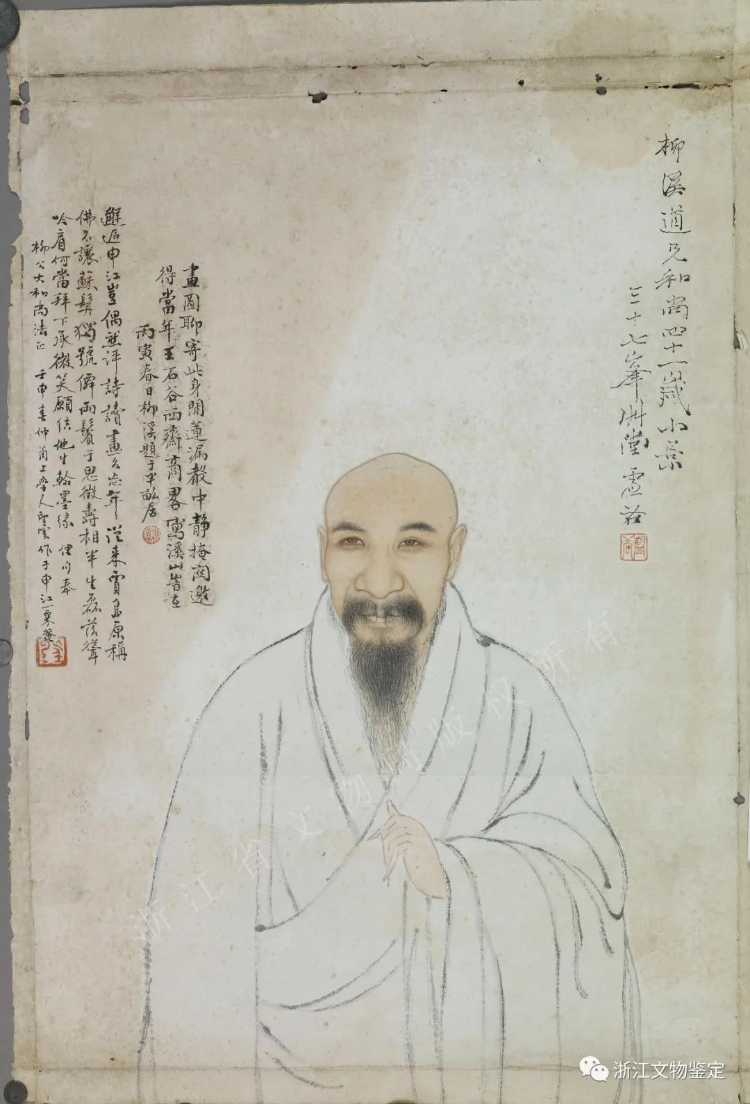 柳溪道兄和尚四十一歲小景
三十七峯艸堂虛谷
畫圖聊寄此身閒蓮漏聲中靜掩關邀
得當年王石谷西齋商畧寫溪山皆在
丙寅春日柳溪題于半畝居
邂逅申江豈偶然評詩讀畫公忘年從來賈島原稱
佛不讓蘇髯獨號僊兩鬢于思徵壽相半生磊落聳
吟肩何當拜下承微笑願結他生翰墨緣 俚句奉
柳公大和尚法正 壬申春仲 上學人 作于申江一粟菴
浙江省文物 版权所有
浙江文物鉴定